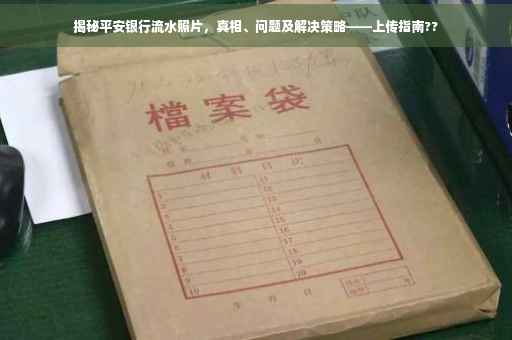 揭秘平安银行流水照片，真相、问题及解决策略——上传指南??
檔案袋
材料目次
1
2
3
4
5
6
7
8
9
10
11
12
13
14
15
16
17
18
19
20
年 月 日